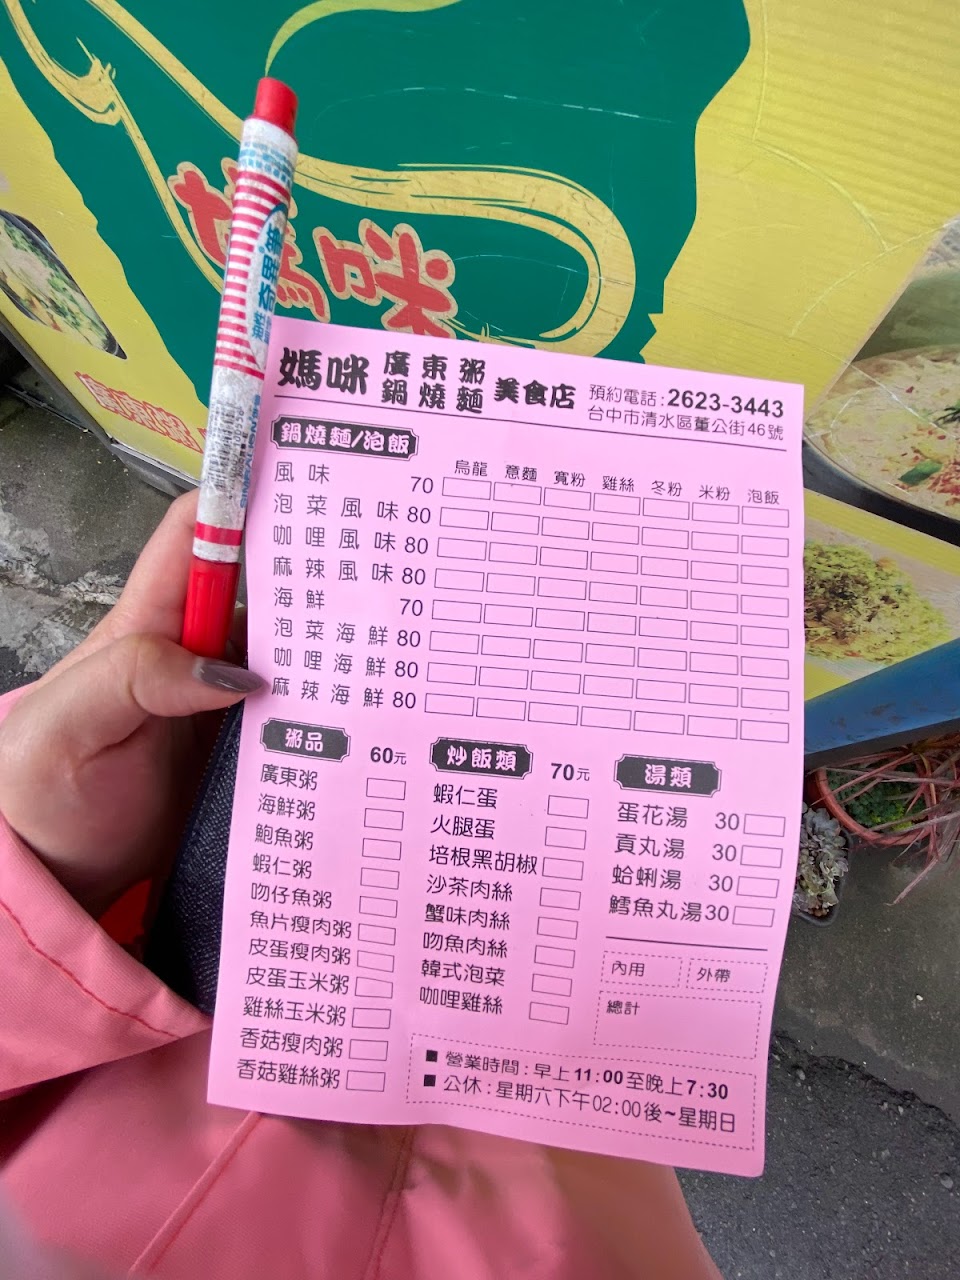 媽咪
媽咪 廣東粥 鍋燒麵 美食店
預約電話:2623-3443
台中市清水區董公街46號
鍋燒麵/泡飯
烏龍 意麵 寬粉 雞絲 冬粉 米粉 泡飯
風味 70
泡菜風味 80
咖哩風味 80
麻辣風味 80
海鮮 70
泡菜海鮮 80
咖哩海鮮 80
麻辣海鮮 80
粥品 60元
廣東粥
海鮮粥
鮑魚粥
蝦仁粥
吻仔魚粥
魚片瘦肉粥
皮蛋瘦肉粥
皮蛋玉米粥
雞絲玉米粥
香菇瘦肉粥
香菇雞絲粥
炒飯類 70元
蝦仁蛋
火腿蛋
培根黑胡椒
沙茶肉絲
蟹味肉絲
吻魚肉絲
韓式泡菜
咖哩雞絲
湯類
蛋花湯 30
貢丸湯 30
蛤蜊湯 30
鱈魚丸湯 30
內用 外帶
總計
■ 營業時間:早上11:00至晚上7:30
■ 公休:星期六下午02:00後~星期日